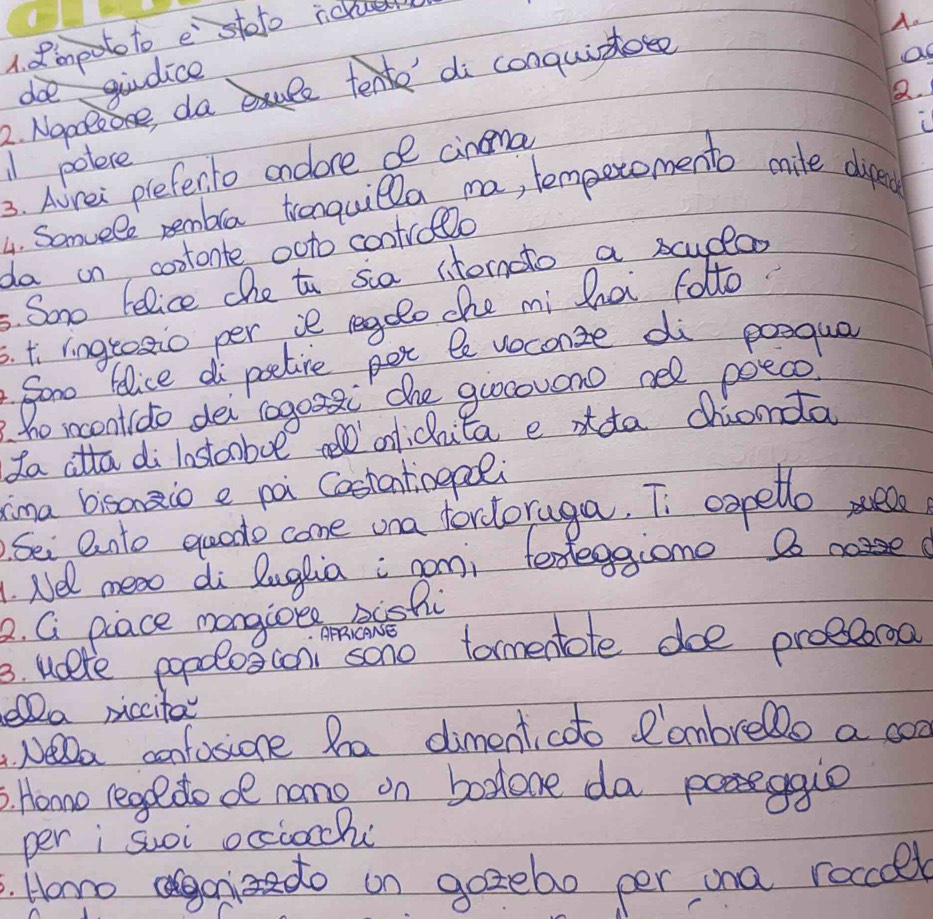 1. L'imputato è stato
dal giudice
2. Napoleone, da esule tentò di conquistare
il potere
3. Avrei preferito andare al cinema
4. Samuele sembra tranquilla ma, temperamento mite dipende
da un costante auto controllo
5. Sono felice che tu sia ritornato a scuola
6. ti ringrazio per il regalo che mi hai fatto
7. Sono felice di partire per le vacanze di pasqua
8. ho incontrato dei ragazzi che giocavano nel parco
La città di Instanbul nell'antichita e stata chiamata
rima bisanzio e poi Costantinopoli
0. Sei lento quanto come una tartaruga. Ti aspetto
1. Nel mese di luglia i nonni festeggiano le nozze d
2. Ci piace mangiare sushi
3. Molte popolazioni AFRICANE sono tormentate dal problema
ella siccita
4. Nella confusione ha dimenticato l'ombrello a cas
5. Hanno regalato al nonno un bastone da passeggio
per i suoi acciacchi
6. Hanno organizzato un gazebo per una raccolt
1.
2.